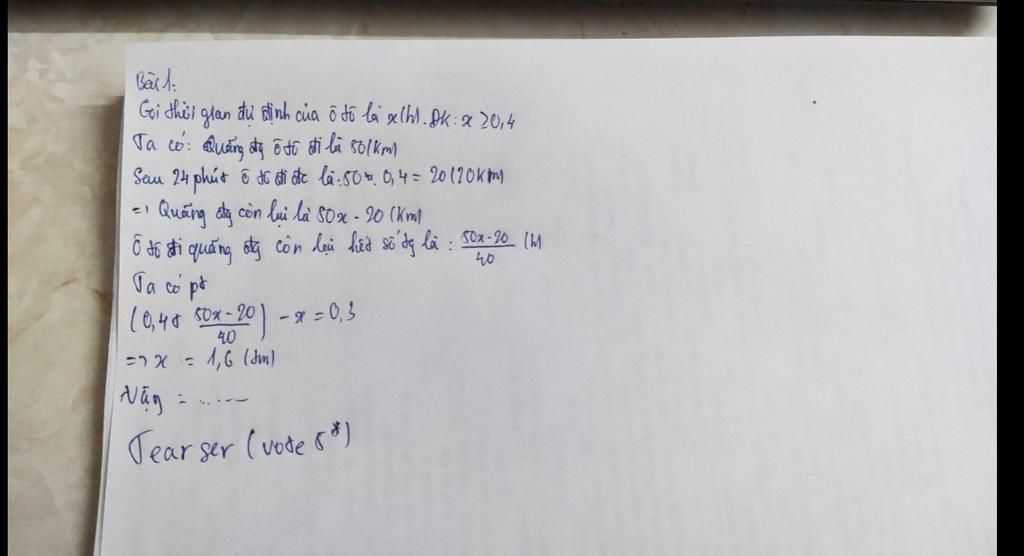 Bài 1:
Gọi thời gian dự định của ô tô là x(h). ĐK: x ≥ 0,4
Ta có: Quãng đg ô tô đi là 50(Km)
Sau 24 phút ô tô đi đc là: 50 . 0,4 = 20 (20Km)
=> Quãng đg còn lại là 50x - 20 (Km)
Ô tô đi quãng đg còn lại hết số tg là : \frac{50x-20}{40} (h)
Ta có pt
(0,4 + \frac{50x-20}{40}) - x = 0,3
=> x = 1,6 (tm)
Vậy = .....
Tear ser (vote 5*)